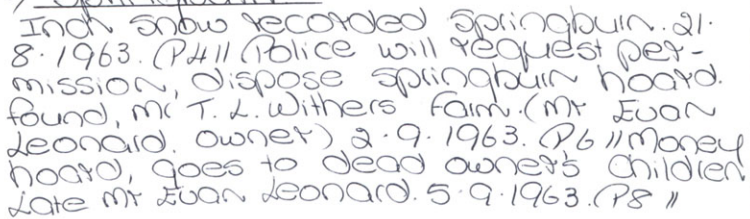 Inch snow recorded Springburn. 21.
8.1963. (P4 // Police will request per-
mission, dispose Springburn hoard.
found, Mr T. L. Withers Farm. (Mr Euan
Leonard. owner) 2.9.1963. (P6 // Money
hoard, goes to dead owner's children
Late Mr Euan Leonard. 5.9.1963. (P8 //